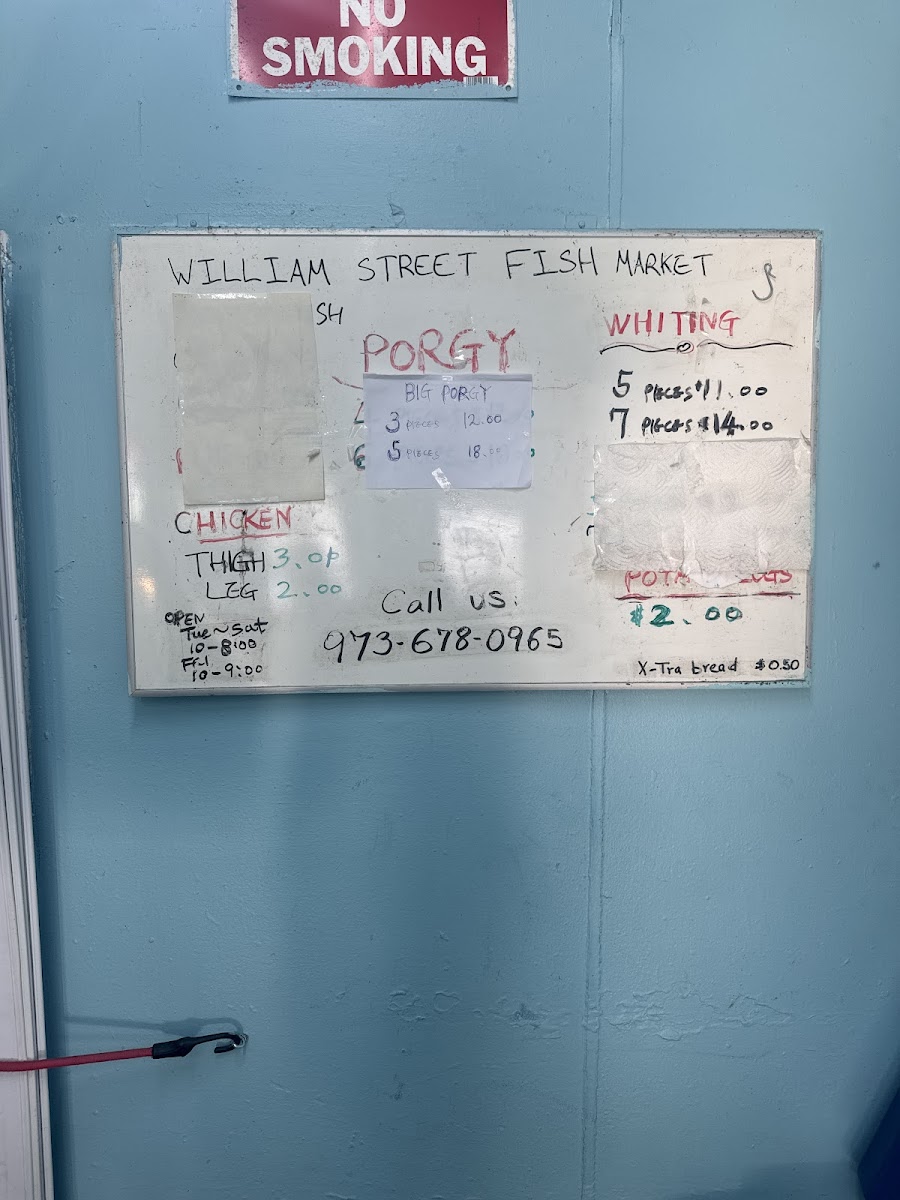 NO
SMOKING
WILLIAM STREET FISH MARKET
SH
PORGY
BIG PORGY
3 PIECES 12.00
5 PIECES 18.00
WHITING
5 PIECES $11.00
7 PIECES $14.00
CHICKEN
THIGH 3.00
LEG 2.00
OPEN
Tue~Sat
10-8:00
Fri
10-9:00
Call us:
973-678-0965
$2.00
X-Tra bread $0.50